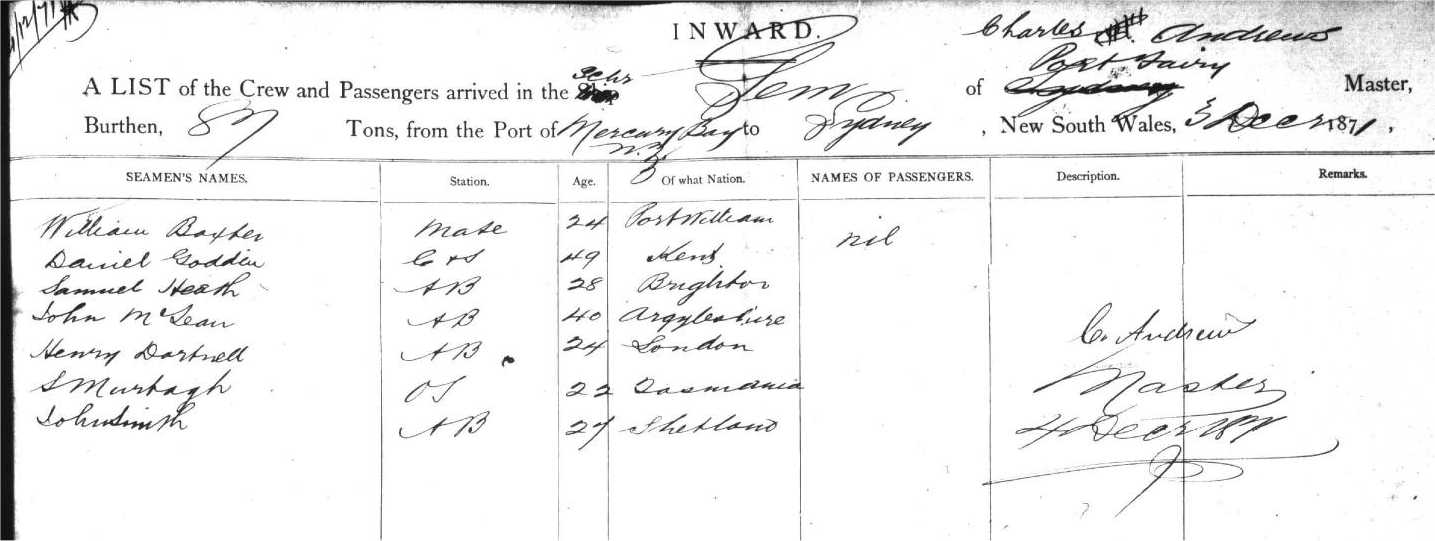 4/12/71
INWARD.
Charles Andrews
Port Fairy
A LIST of the Crew and Passengers arrived in the Schr Gem of Master,
Burthen, 87 Tons, from the Port of Mercury Bay N.Z. to Sydney, New South Wales, 3 Decr 1871,
SEAMEN'S NAMES. Station. Age. Of what Nation. NAMES OF PASSENGERS. Description. Remarks.
William Baxter Mate 24 Port William nil
Daniel Godden C & S 49 Kent
Samuel Heath AB 28 Brighton
John McLean AB 40 Argyleshire
Henry Dartnell AB 24 London
S Murtagh OS 22 Tasmania
John Smith AB 27 Shetland
C. Andrews
Master
4 Decr 1871